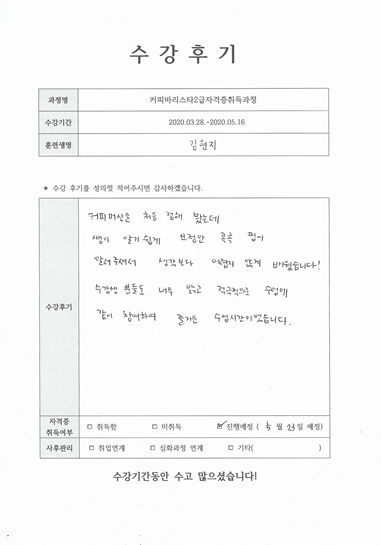 수강후기
과정명 커피바리스타2급자격증취득과정
수강기간 2020.03.28.-2020.05.16
훈련생명 김현지
★ 수강 후기를 성의껏 적어주시면 감사하겠습니다.
수강후기
커피 머신을 처음 접해 봤는데
쌤이 알기 쉽게 포인트만 콕콕 찝어
알려주셔서 생각보다 어렵지 않게 배웠습니다!
수강생 분들도 너무 밝고 적극적으로 수업에
같이 참여하여 즐거운 수업시간이었습니다.
자격증 취득여부 □ 취득함 □ 미취득 ☑ 진행예정 ( 5 월 23일 예정)
사후관리 □ 취업연계 □ 심화과정 연계 □ 기타( )
수강기간동안 수고 많으셨습니다!